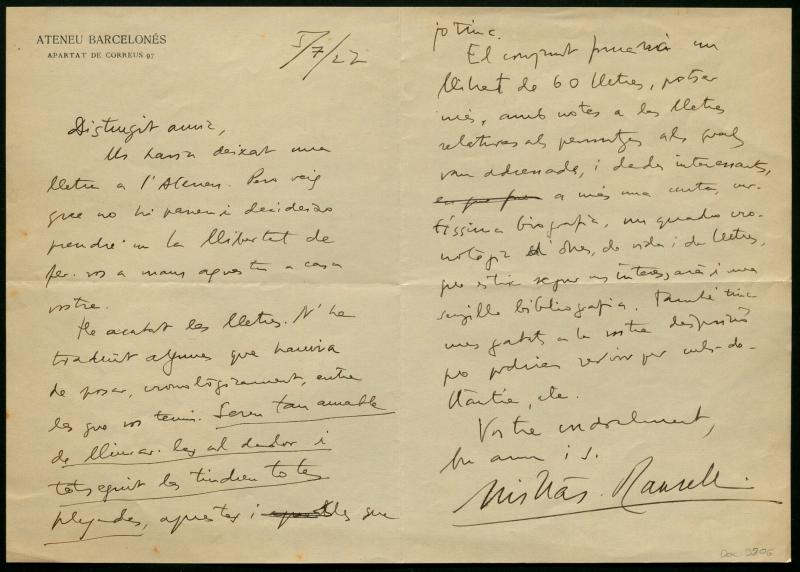 ATENEU BARCELONÉS
APARTAT DE CORREUS 97
5/7/22
Distingit amic,
Us havia deixat una
lletra a l'Ateneu. Però veig
que no hi paneu i decideixo
prendre'm la llibertat de
fer-vos a mans aquesta a casa
vostre.
He acabat les lletres. N'he
traduït algunes que hauria
de posar, cronològicament, entre
les que vos teniu. Sereu tan amable
de lliurar-les al dador i
totseguit les tindreu totes
plegades, aquestes i les que
jo tinc.
El conjunt formarà un
llibret de 60 lletres, potser
més, amb notes a les lletres
relatives als personatges als quals
van adreçades, i dades interessants,
a més una curta, cur-
tíssima biografia, un quadro cro-
nològic d'obres, de vida i de lletres,
que estic segur us interessarà i una
senzilla bibliografia. També tinc
uns gravats a la vostra disposició
que podrien servir per culs-de-
llàntia, etc.
Vostre cordialment,
bon amic i s.
Doc 9806